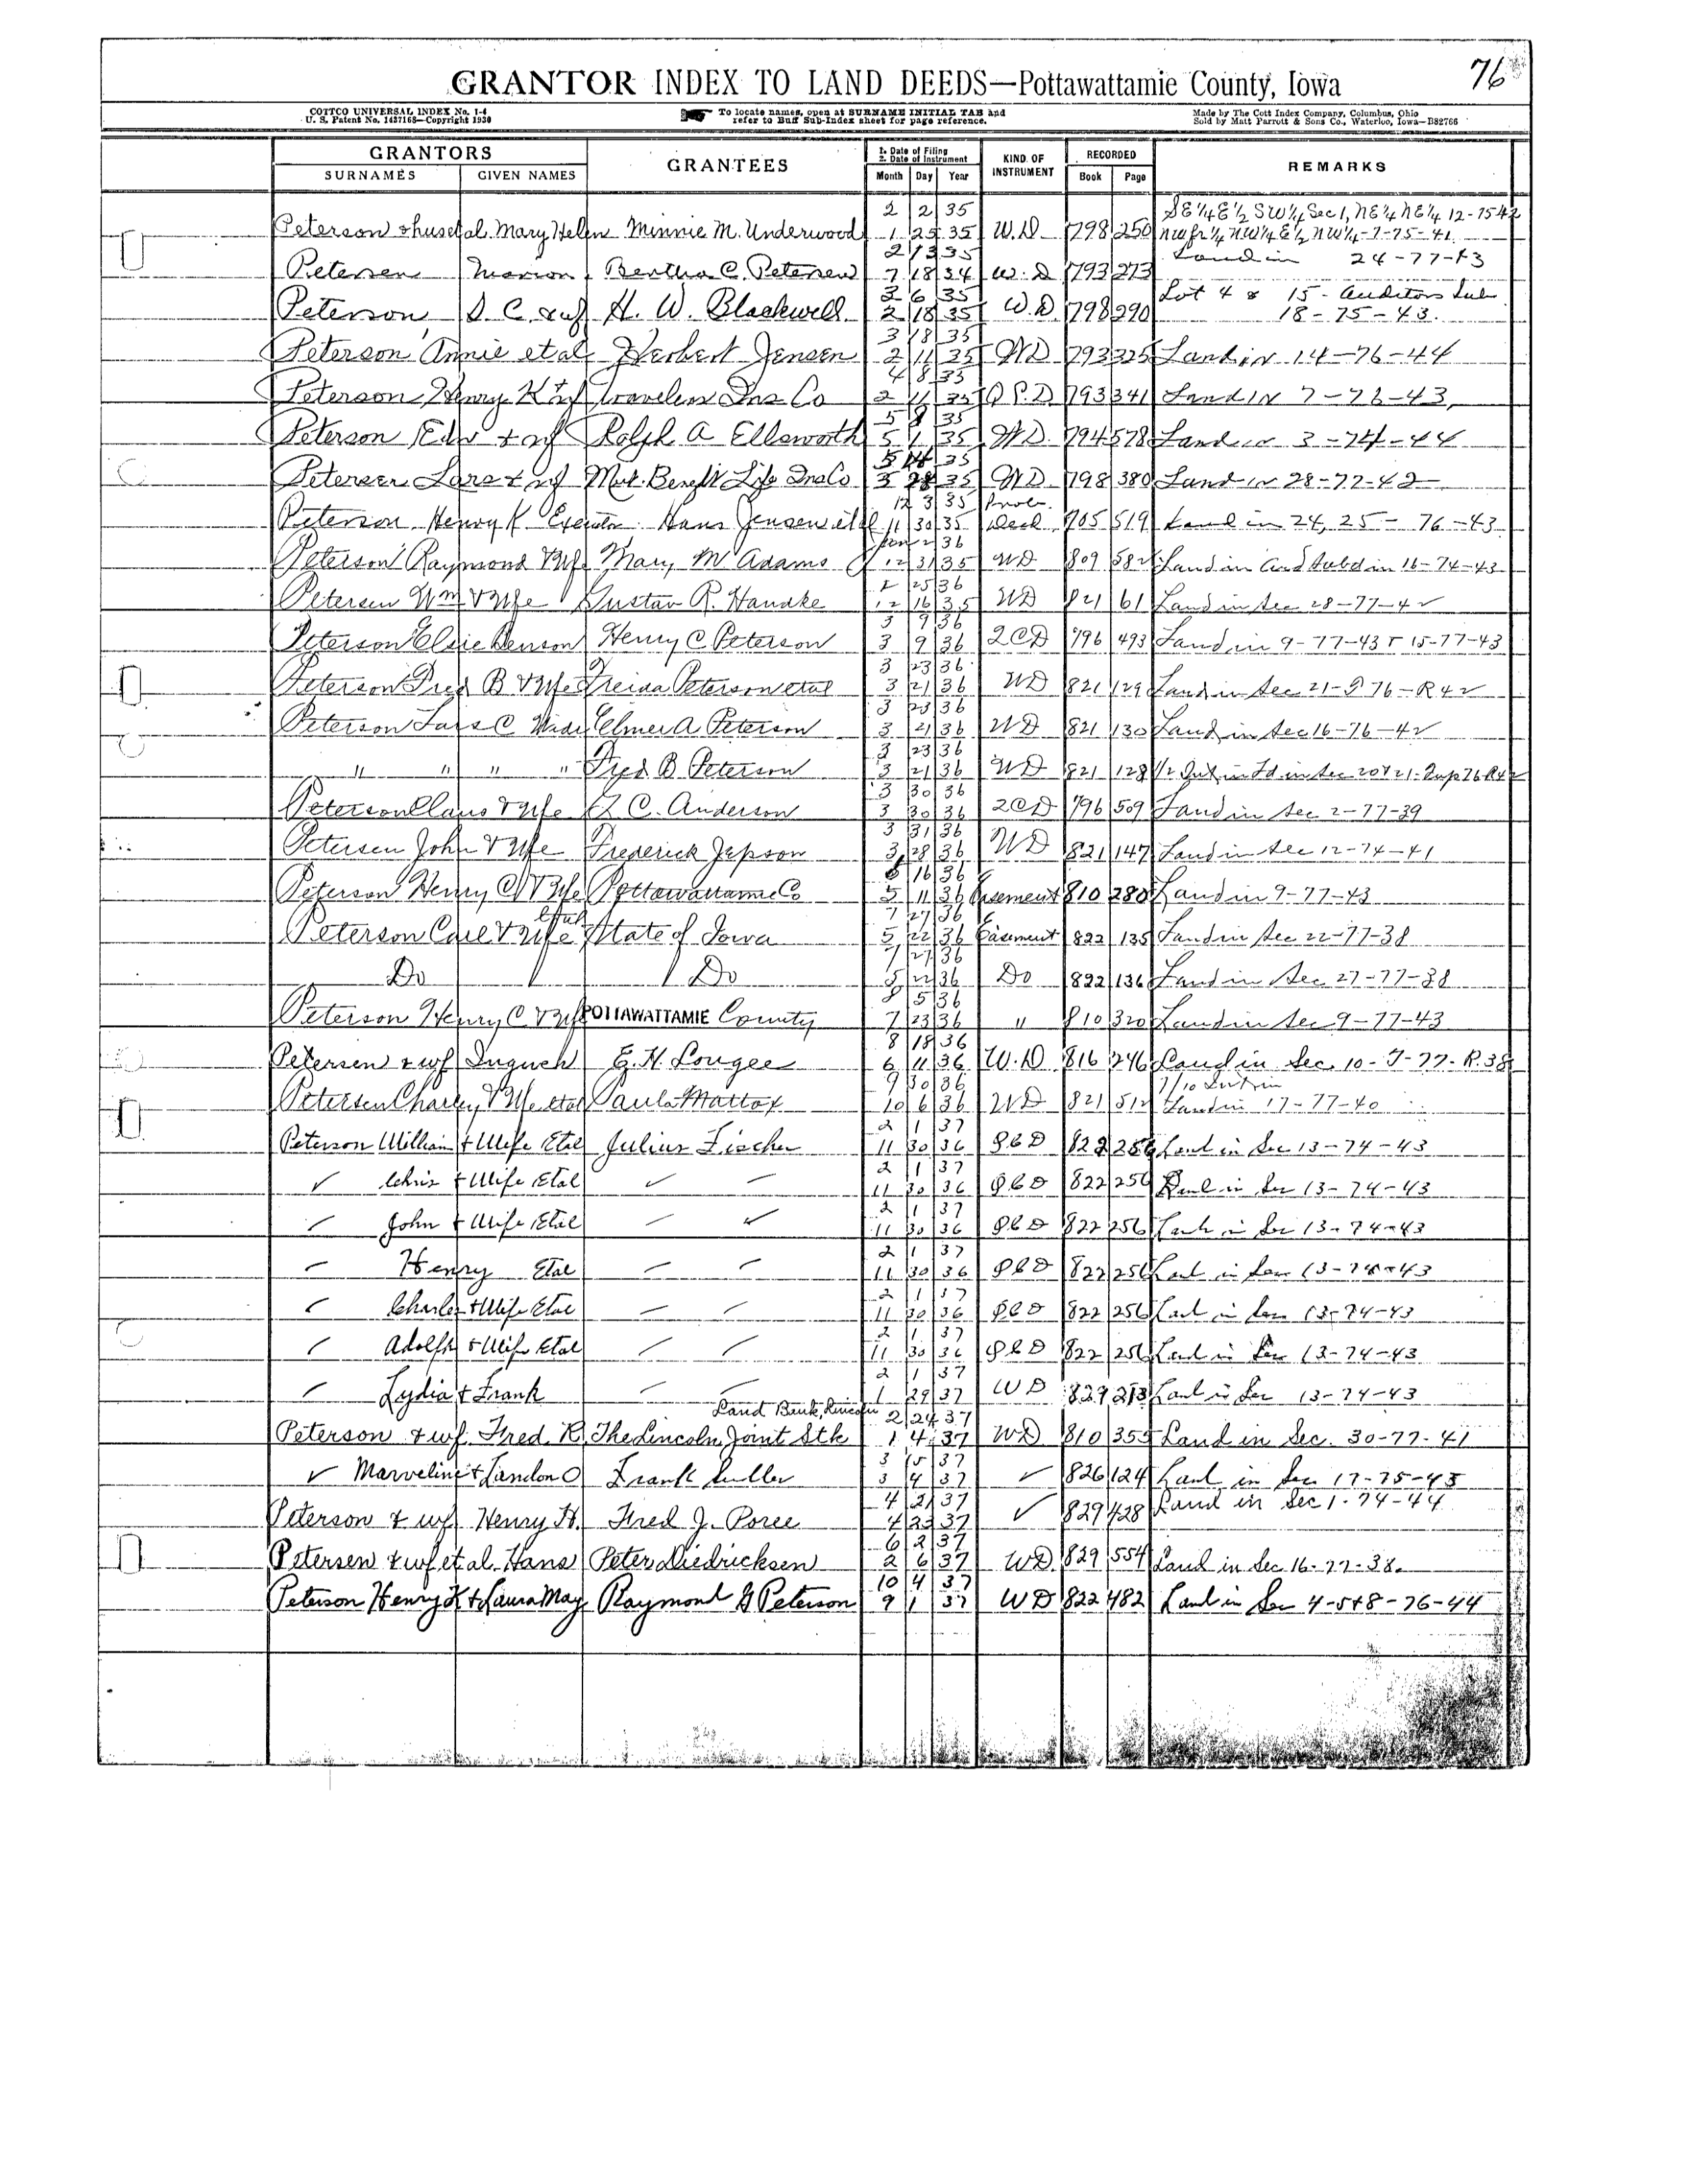 76
GRANTOR INDEX TO LAND DEEDS—Pottawattamie County, Iowa
COTTCO UNIVERSAL INDEX No. 1-4
U. S. Patent No. 1437168—Copyright 1930
To locate names, open at SURNAME INITIAL TAB and
refer to Buff Sub-Index sheet for page reference.
Made by The Cott Index Company, Columbus, Ohio
Sold by Matt Parrott & Sons Co., Waterloo, Iowa—B82766
GRANTORS GRANTEES 1. Date of Filing 2. Date of Instrument KIND OF INSTRUMENT RECORDED REMARKS
SURNAMES GIVEN NAMES Month Day Year Book Page
2 2 35 SE¼ E½ SW¼ Sec 1, NE¼ NE¼ 12-75-42
Peterson & hus et al Mary Helen Minnie M. Underwood 1 25 35 W.D 798 250 NW fr ¼ NW¼ E½ NW¼-7-75-41
2 13 35 Land in 24-77-43
Petersen Marion Bertha C. Petersen 7 18 34 W.D 793 273
3 6 35 Lot 4 & 15- Auditors Sub
Peterson, S. C. & wf H. W. Blackwell 2 18 35 W.D. 798 290 18-75-43.
3 18 35
Peterson Annie et al Herbert Jensen 2 11 35 WD 793 325 Land in 14-76-44
4 8 35
Peterson, Henry K & wf Travelers Ins Co 2 11 35 793 341 Land in 7-76-43
5 8 35
Peterson Edw & wf Ralph A Ellsworth 5 1 35 WD. 794 578 Land in 3-74-44
5 14 35
Petersen Lars & wf Mut. Benefit Life Ins Co 3 28 35 WD. 798 380 Land in 28-77-42
12 3 35 Prob.
Peterson Henry K Executor Hans Jensen et al 11 30 35 Deed 705 519 Land in 24, 25-76-43
Jan 2 36
Peterson Raymond & Wife Mary M Adams 12 31 35 WD 809 582 Land in Aud Subd in 16-74-43
2 25 36
Petersen Wm & Wife Gustav R. Handke 12 16 35 WD 821 61 Land in Sec 28-77-42
3 9 36
Peterson Elsie Benson Henry C Peterson 3 9 36 2CD 796 493 Land in 9-77-43 & 15-77-43
3 23 36
Peterson Fred B & Wife Freida Peterson etal 3 21 36 WD 821 129 Land in Sec 21-T 76-R42
3 23 36
Peterson Lars C Wide Elmer A Peterson 3 21 36 WD 821 130 Land in Sec 16-76-42
3 23 36
" " " " Fred B Peterson 3 21 36 WD 821 128 1/2 Int in Ld in Sec 20 & 21-Twp 76 R42
3 30 36
Peterson Claus & Wife C. Anderson 3 30 36 2CD 796 509 Land in Sec 2-77-39
3 31 36
Petersen John & Wife Frederick Jepson 3 28 36 WD 821 147 Land in Sec 12-74-41
6 16 36
Peterson Henry C & Wife Pottawattamie Co 5 11 36 Easement 810 280 Land in 9-77-43
etal 7 27 36
Peterson Carl & Wife State of Iowa 5 22 36 Easement 822 135 Land in Sec 22-77-38
7 27 36
Do Do 5 22 36 Do 822 136 Land in Sec 27-77-38
8 5 36
Peterson Henry C & Wife POTTAWATTAMIE County 7 23 36 " 810 320 Land in Sec 9-77-43
8 18 36
Petersen & wf E. H. Lougee 6 11 36 W.D 816 246 Land in Sec. 10-T-77-R.38
9 30 36 1/10 Int in
Petersen Charley & Wife etal Paula Mattox 10 6 36 WD 821 512 Land in 17-77-40
2 1 37
Peterson William & Wife Etal Julius Fischer 11 30 36 QCD 822 256 Land in Sec 13-74-43
2 1 37
✓ Chris & Wife Etal ✓ — 11 30 36 QCD 822 256 Land in Sec 13-74-43
2 1 37
✓ John & Wife Etal — ✓ 11 30 36 QCD 822 256 Land in Sec 13-74-43
2 1 37
✓ Henry Etal — — 11 30 36 QCD 822 256 Land in Sec 13-74-43
2 1 37
✓ Charles & Wife Etal — — 11 30 36 QCD 822 256 Land in Sec 13-74-43
2 1 37
✓ Adolph & Wife Etal — — 11 30 36 QCD 822 256 Land in Sec 13-74-43
2 1 37
✓ Lydia & Frank — — 1 29 37 WD 829 213 Land in Sec 13-74-43
Land Bank, Lincoln 2 24 37
Peterson & wf. Fred. R. The Lincoln Joint Stk 1 4 37 WD 810 355 Land in Sec. 30-77-41
3 15 37
✓ Marveline & Landon O Frank 3 4 37 ✓ 826 124 Land in Sec 17-75-43
4 21 37 Land in Sec 1-74-44
Peterson & wf Henry H. Fred J. Poree 4 23 37 ✓ 829 428
6 2 37
Petersen & wf et al. Hans Peter Diedricksen 2 6 37 WD. 829 554 Land in Sec 16-77-38.
10 4 37
Peterson Henry K & Laura May Raymond G Peterson 9 1 37 WD 822 482 Land in Sec 4-5+8-76-44